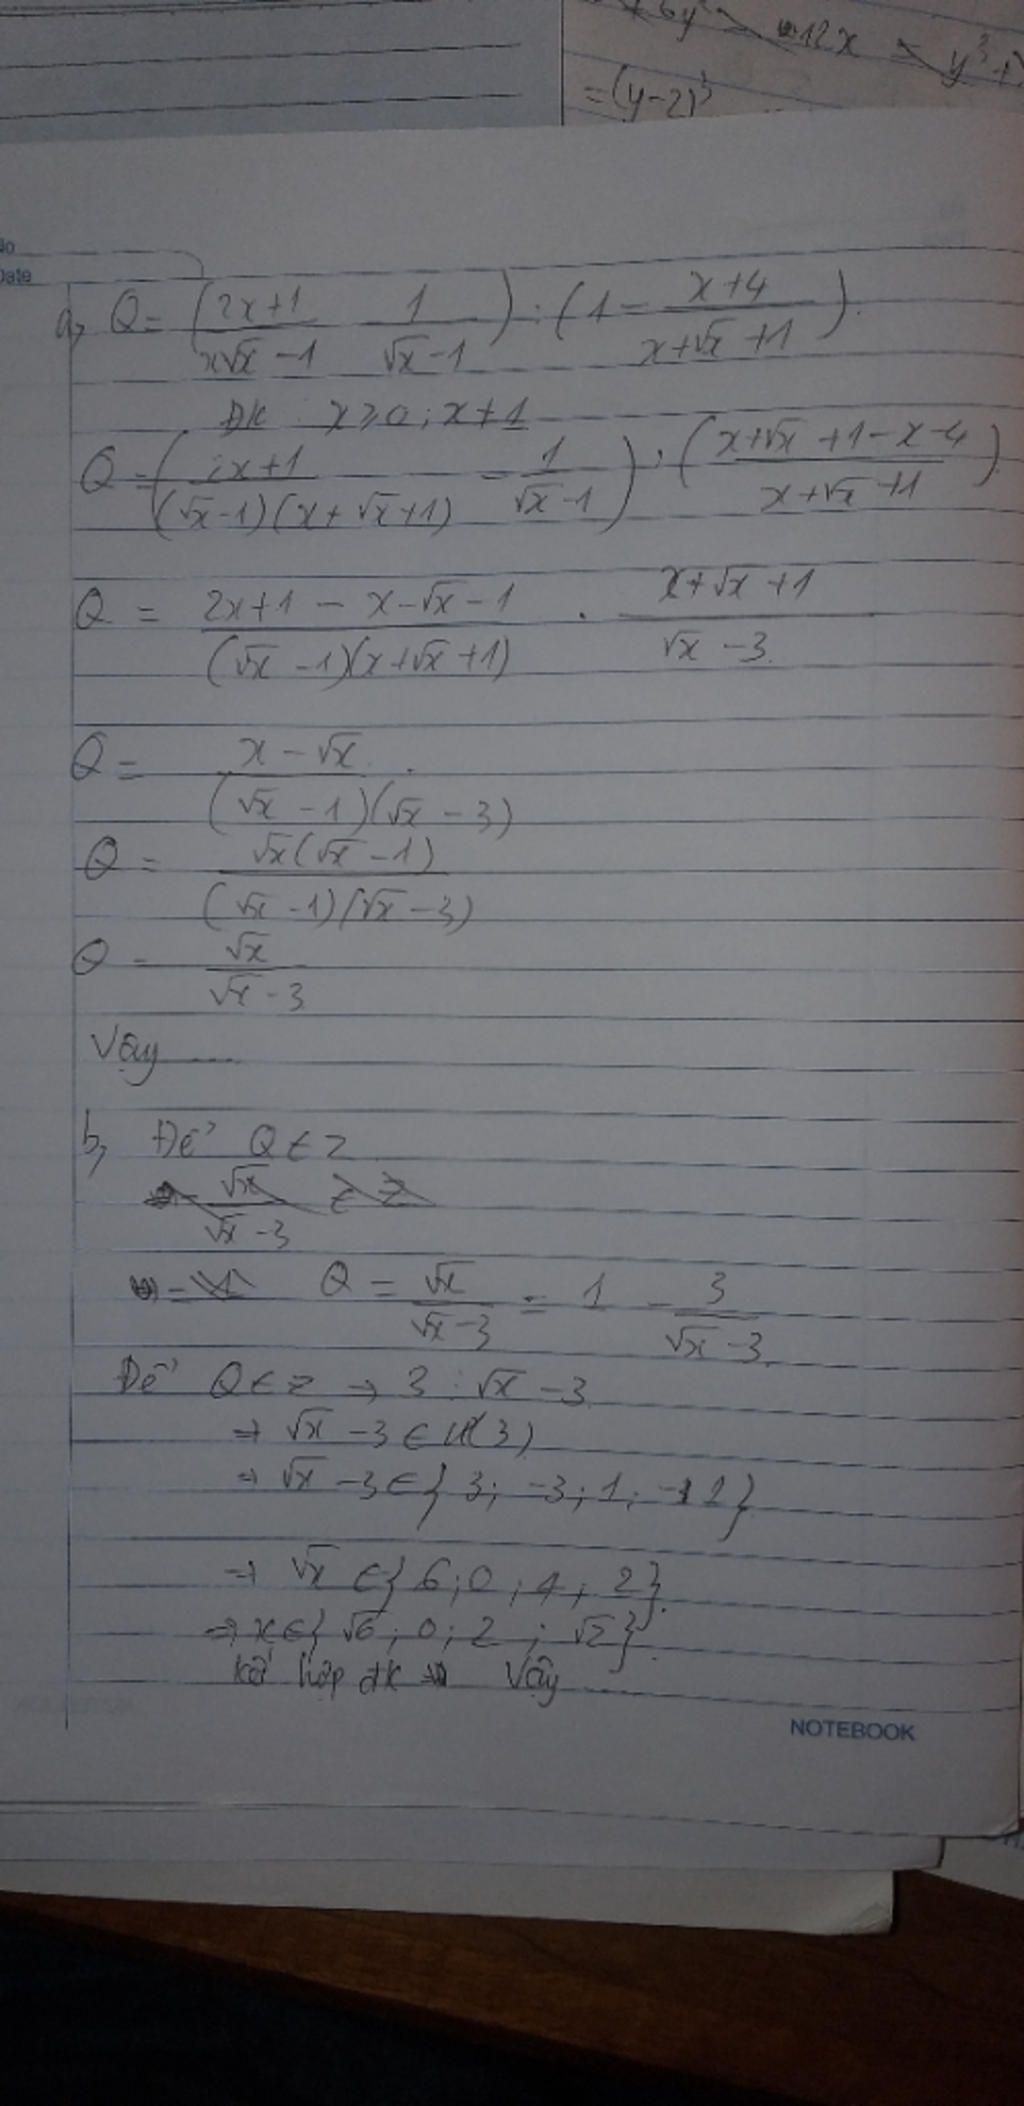 + 6y² - 12x = y³ +
= (y-2)³
No
Date
a, Q = (2x+1 / x√x -1  1 / √x -1) : (1 - x+4 / x+√x+1).
ĐK : x ≥ 0 ; x ≠ 1
Q = (2x+1 / (√x-1)(x+√x+1) - 1 / √x-1) : (x+√x+1-x-4 / x+√x+1)
Q = 2x+1 - x-√x-1 / (√x -1)(x+√x+1) . x+√x+1 / √x -3
Q = x - √x / (√x -1)(√x -3)
Q = √x(√x -1) / (√x -1)(√x -3)
Q = √x / √x - 3
Vậy ....
b, Để Q ∈ Z
√x / √x -3 ∈ Z
Q = √x / √x -3 = 1 - 3 / √x -3
Để Q ∈ Z → 3 ⋮ √x -3
→ √x -3 ∈ Ư(3)
→ √x -3 ∈ { 3; -3; 1; -1 }
→ √x ∈ { 6; 0; 4; 2 }
→ x ∈ { √6; 0; 2; √2 }.
kết hợp đk Vậy
NOTEBOOK